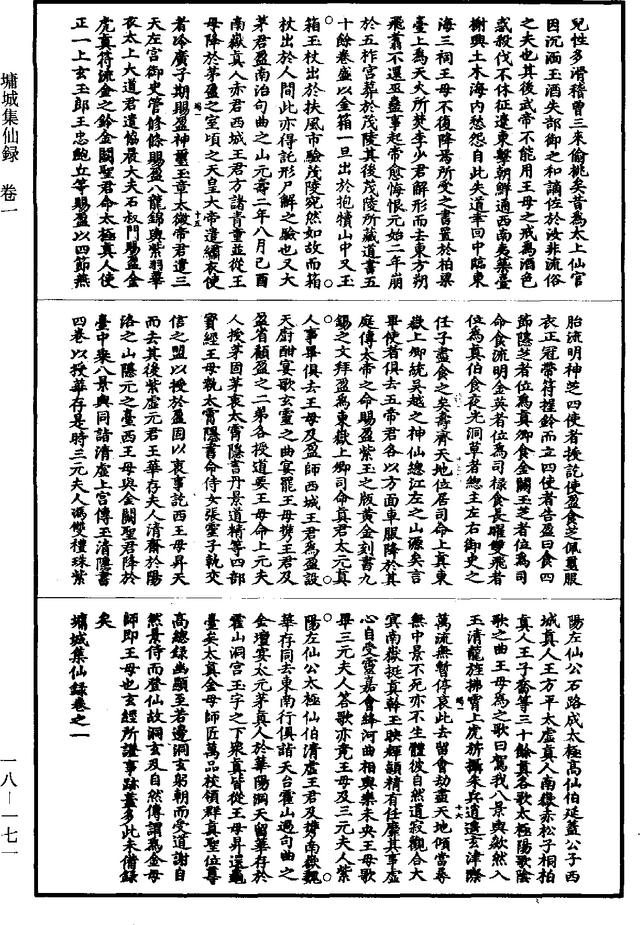 兒性多滑稽曾三來偷桃矣昔為太上仙官
因沉湎玉酒失部御之和謫佐於汝非流俗
之夫也其後武帝不能用王母之戒為酒色
惑殺伐不休征遼東擊朝鮮通西南夷築臺
榭興土木海內愁怨自此失道幸回中臨東
海三祠王母不復降焉所受之書置於柏梁
臺上為天火所焚李少君解形而去東方朔
飛翥不還巫蠱事起帝愈悔恨元始二年崩
於五柞宮葬於茂陵其後茂陵所藏道書五
十餘卷盛以金箱一旦出於抱犢山中又玉
箱玉杖出於扶風市驗茂陵宛然如故而箱
杖出於人間此亦得託形尸解之驗也又大
茅君盈南治句曲之山元壽二年八月己酉
南嶽真人赤君西城王君方諸青童並從王
母降於茅盈之室頃之天皇大帝遣繡衣使
者泠廣子期賜盈神璽玉章太微帝君遣三
天左宮御史管修條賜盈八龍錦輿紫羽華
衣太上大道君遣協晨大夫石叔門賜盈金
虎真符流金之鈴金闕聖君命太極真人使
正一上玄玉郎王忠鮑丘等賜盈以四節燕
胎流明神芝四使者授訖使盈食芝佩璽服
衣正冠帶符握鈴而立四使者告盈曰食四
節隱芝者位為真卿食金闕玉芝者位為司
命食流明金英者位為司祿食長曜雙飛者
位為真伯食夜光洞草者總主左右御史之
任子盡食之矣壽齊天地位居司命上真東
嶽上卿統吳越之神仙總江左之山源矣言
畢使者俱去五帝君各以方面車服降於其
庭傳太帝之命賜盈紫玉之版黃金刻書九
錫之文拜盈為東嶽上卿司命真君太元真
人事畢俱去王母及盈師西城王君為盈設
天廚酣宴歌玄靈之曲宴罷王母攜王君及
盈省顧盈之二弟各授道要王母命上元夫
人授茅固茅衷太霄隱書丹景道精等四部
寶經王母執太霄隱書命侍女張靈子執交
信之盟以授於盈固以衷事訖西王母昇天
而去其後紫虛元君王華存夫人清齋於陽
洛之山隱元之臺西王母與金闕聖君降於
臺中乘八景輿同詣清虛上宮傳玉清隱書
四卷以授華存是時三元夫人馮雙禮珠紫
陽左仙公石路成太極高仙伯延蓋公子西
城真人王方平太虛真人南嶽赤松子桐柏
真人王子喬等三十餘真各歌太極陽歌陰
歌之曲王母為之歌曰駕我八景輿欻然入
玉清龍旌拂霄上虎旂攝朱兵逍遙玄津際
萬流無暫停哀此去留會劫盡天地傾當尋
無中景不死亦不生體彼自然道寂觀合大
冥南嶽挺真幹玉映輝頴精有任靡其事虛
心自受靈嘉會絳河曲相與樂未央王母歌
畢三元夫人答歌亦竟王母及三元夫人紫
陽左仙公太極仙伯清虛王君及攜南嶽魏
華存同去東南行俱詣天台霍山過句曲之
金壇宴太元茅真人於華陽洞天留華存於
霍山洞宮玉宇之下眾真皆從王母昇還龜
臺矣太真金母師匠萬品校領群真聖位尊
高總錄幽顯至若邊洞玄躬朝而受道謝自
然景侍而登仙故洞玄及自然傳謂為金母
師即王母也玄經所證事跡蓋多此未備錄
矣
墉城集仙錄卷之一
墉城集仙録 卷一
一八—一七一